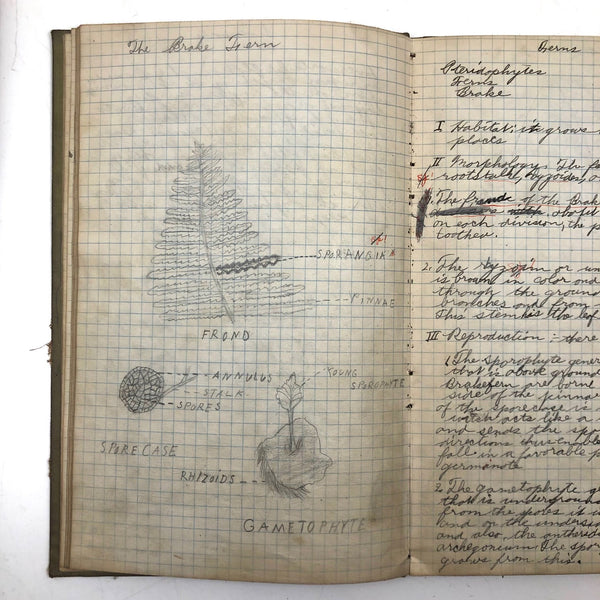 The Brake Fern
SPORANGIA
PINNAE
FROND
ANNULUS
YOUNG
SPOROPHYTE
STALK
SPORES
SPORECASE
RHIZOIDS
GAMETOPHYTE
Ferns
Pteridophytes
Ferns
Brake
I Habitat: it grows
places
II Morphology: The
rootstalk,
1. The of the Brake
on each division, the
2. The or
is brown in color and
through the ground
branches and from
This stem is the leaf
III Reproduction :- there
1. The Sporophyte gene
that is above ground
Brakefern are borne
side of the pinnae
of the sporecase is
witch acts like a
and sends the spo
directions thus
fall in a favorable p
germanate
2. The gametophyte ge
that is underground
from the spores it
and on the undersid
and also, the antherid
archegonium The spor
grows from this.